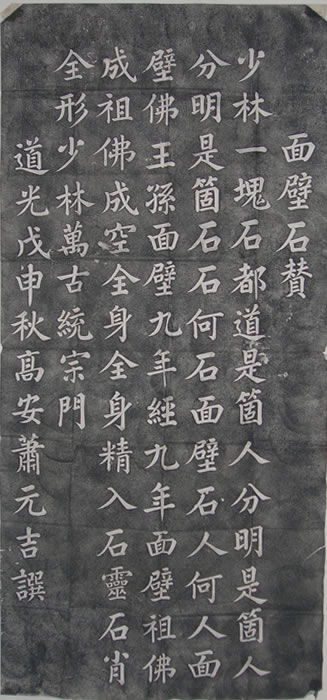 面壁石贊
少林一塊石都道是箇人分明是箇人
分明是箇石石何石面壁石人何人面
壁佛王孫面壁九年經九年面壁祖佛
成祖佛成空全身全身精入石靈石肖
全形少林萬古統宗門
道光戊申秋高安蕭元吉譔